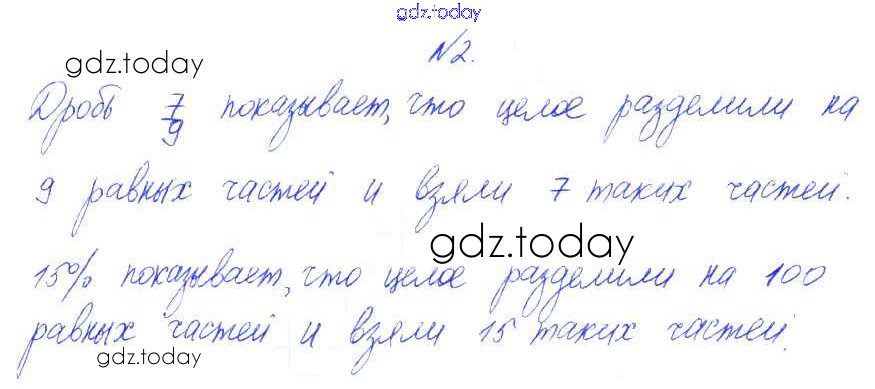 gdz.today
№2.
gdz.today
Дробь 7/9 показывает, что целое разделили на
9 равных частей и взяли 7 таких частей.
gdz.today
15% показывает, что целое разделили на 100
равных частей и взяли 15 таких частей.
gdz.today